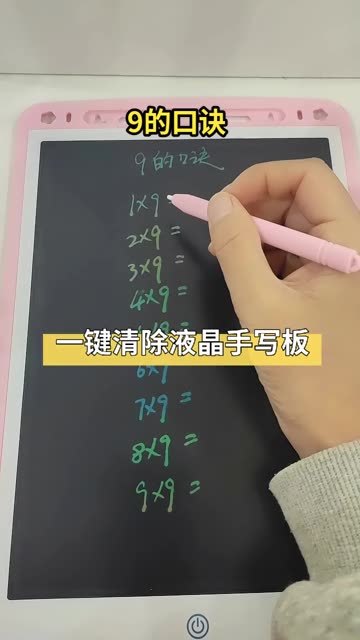 9的口诀
9的口诀
1×9
2×9=
3×9=
4×9=
一键清除液晶手写板
6×9
7×9=
8×9=
9×9=